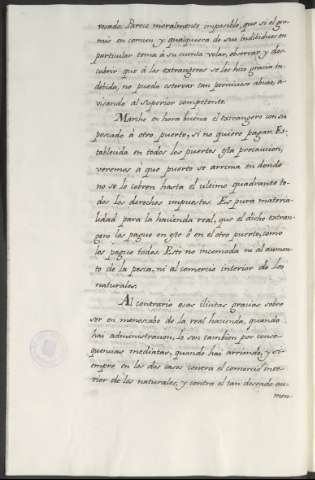 vocado. Parece moralmente imposible, que si el gre-
mio en comun y qualquiera de sus individuos en
particular toma à su cuenta zelar, observar y des-
cubrir que à los extrangeros se les hizo gracia in-
debida, no pueda estorvar tan pernicioso abuso, a-
visando al Superior competente.
Marche en hora buena el extrangero con su
pescado à otro puerto, si no quiere pagar. Es-
tablecida en todos los puertos esta precaucion,
veremos a que puerto se arrima en donde
no se lo cobren hasta el ultimo quadrante to-
dos los derechos impuestos. Es pura materia-
lidad para la hacienda real, que el dicho extran-
gero los pague en este ô en el otro puerto, como
los pague todos. Esto no incomoda ni al aumen-
to de la pesca, ni al comercio interior de los
naturales.
Al contrario esas ilicitas gracias sobre
ser en menoscabo de la real hacienda, quando
hai administracion, lo son tambien por conse-
quencias mediatas, quando hai arriendo, y si-
empre en los dos casos contra el comercio inte-
rior de los naturales, y contra el tan deseado au-
men-